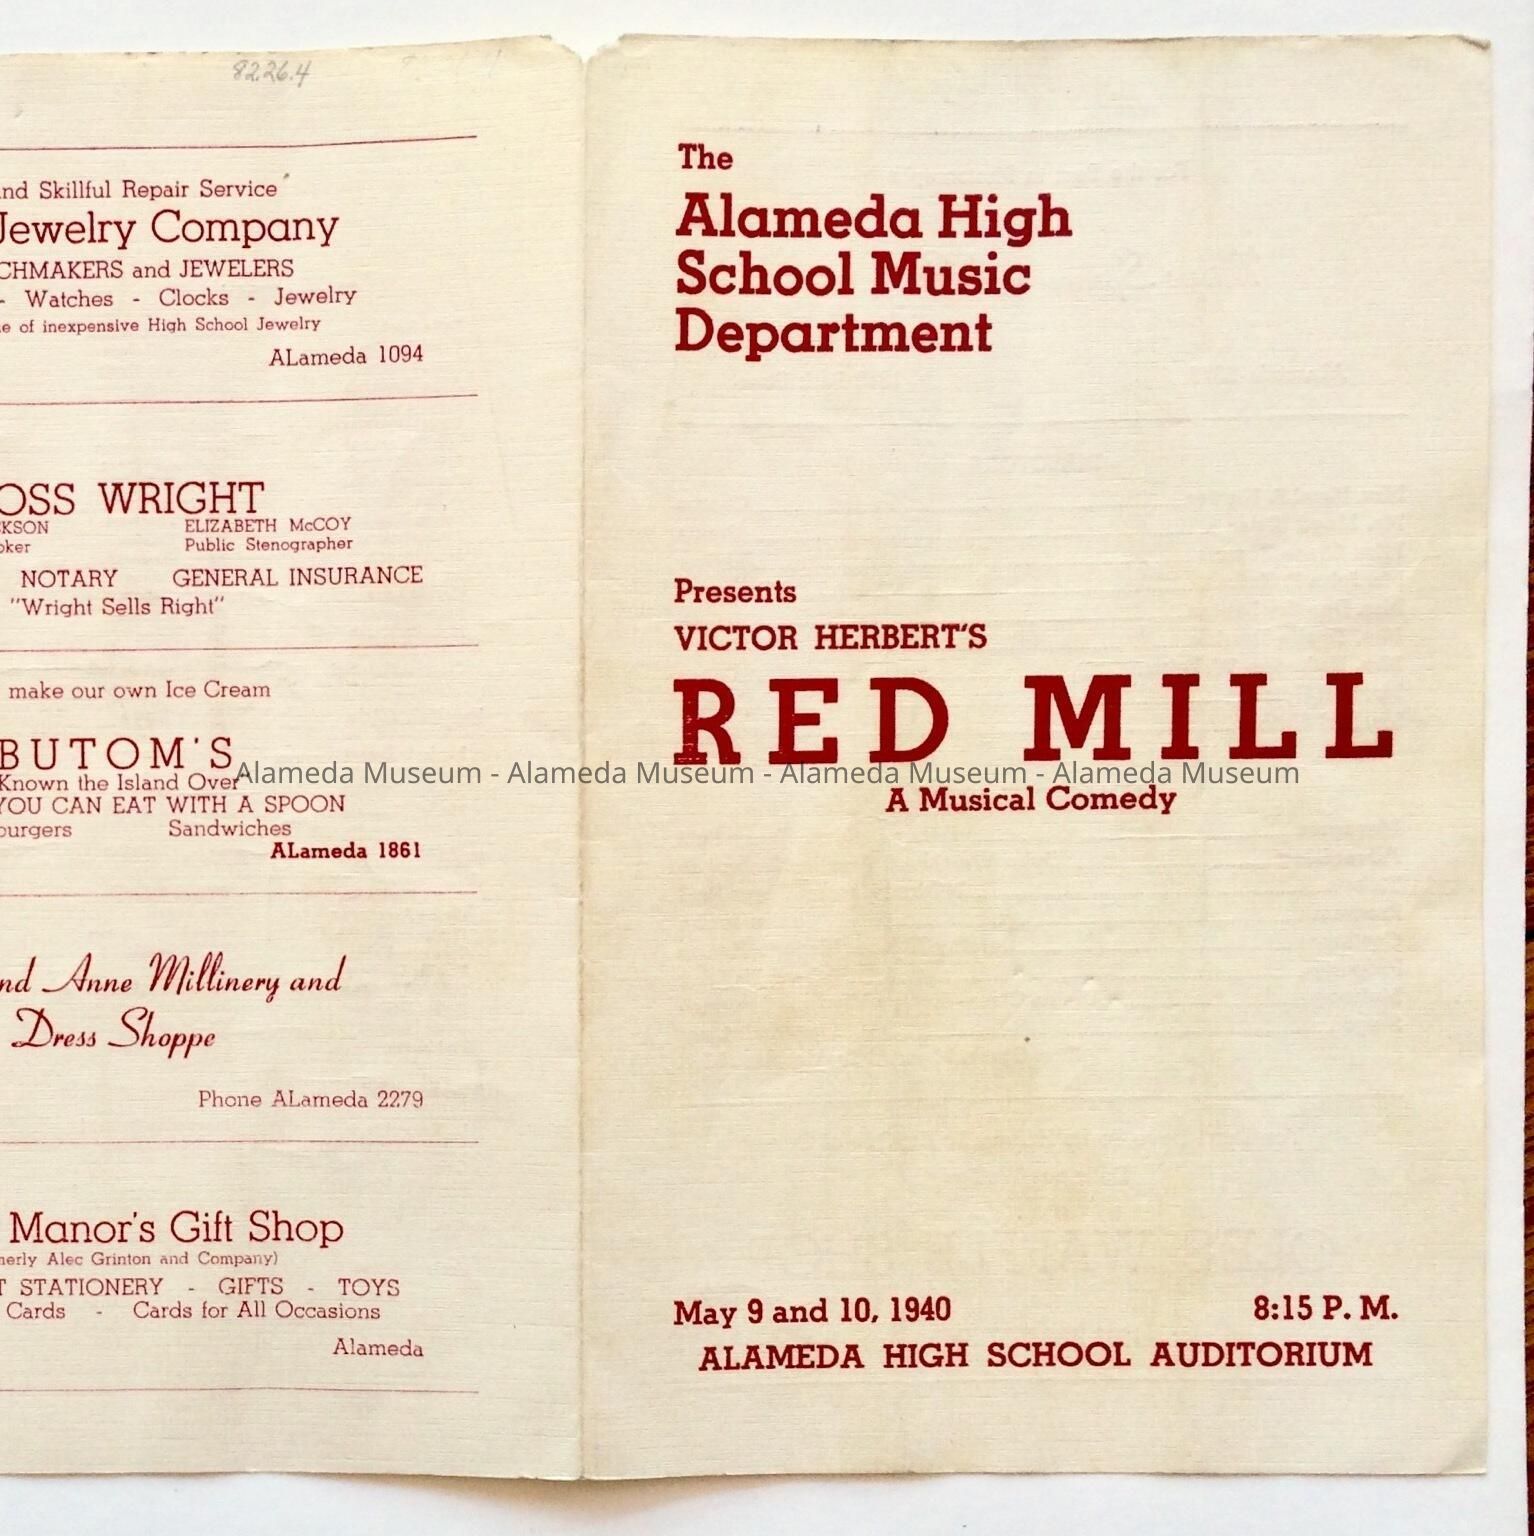 82.26.4
and Skillful Repair Service
Jewelry Company
CHMAKERS and JEWELERS
- Watches - Clocks - Jewelry
e of inexpensive High School Jewelry
ALameda 1094
OSS WRIGHT
KSON ELIZABETH McCOY
oker Public Stenographer
NOTARY GENERAL INSURANCE
"Wright Sells Right"
make our own Ice Cream
BUTOM'S
Known the Island Over"
YOU CAN EAT WITH A SPOON
burgers Sandwiches
ALameda 1861
nd Anne Millinery and
Dress Shoppe
Phone ALameda 2279
Manor's Gift Shop
merly Alec Grinton and Company)
T STATIONERY - GIFTS - TOYS
Cards - Cards for All Occasions
Alameda
The
Alameda High
School Music
Department
Presents
VICTOR HERBERT'S
RED MILL
Alameda Museum - Alameda Museum - Alameda Museum - Alameda Museum
A Musical Comedy
May 9 and 10, 1940 8:15 P. M.
ALAMEDA HIGH SCHOOL AUDITORIUM